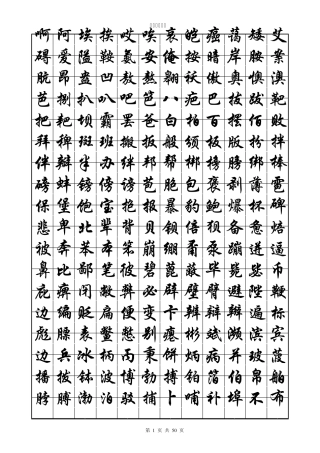 啊阿埃挨哎唉哀皑癌蔼矮艾
碍爱隘鞍氨安俺按暗岸胺案
肮昂盎凹敖熬翱袄傲奥懊澳
芭捌扒叭吧笆八疤巴拔跋靶
把耙坝霸罢爸白柏百摆佰败
拜稗斑班搬扳般颁板版扮拌
伴瓣半办绊邦帮梆榜膀绑棒
磅蚌镑傍谤苞胞包褒剥薄雹
保堡饱宝抱报暴豹鲍爆杯碑
悲卑北辈背贝钡倍狈备惫焙
被奔苯本笨崩绷甭泵蹦迸逼
鼻比鄙笔彼碧蓖蔽毕毙毖币
庇痹闭敝弊必辟壁臂避陛鞭
边编贬扁便变卞辨辩辫遍标
彪膘表鳖憋别瘪彬斌濒滨宾
摈兵冰柄丙秉饼炳病并玻菠
播拨钵波博勃搏铂箔伯帛舶
脖膊渤泊驳捕卜哺补埠不布
第 1 页 共 30 页